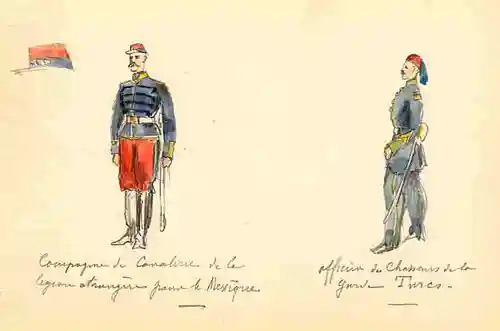 Compagnie de Cavalerie de la
legion etrangère pour le Mexique
officier de Chasseurs de la
garde Turcs.